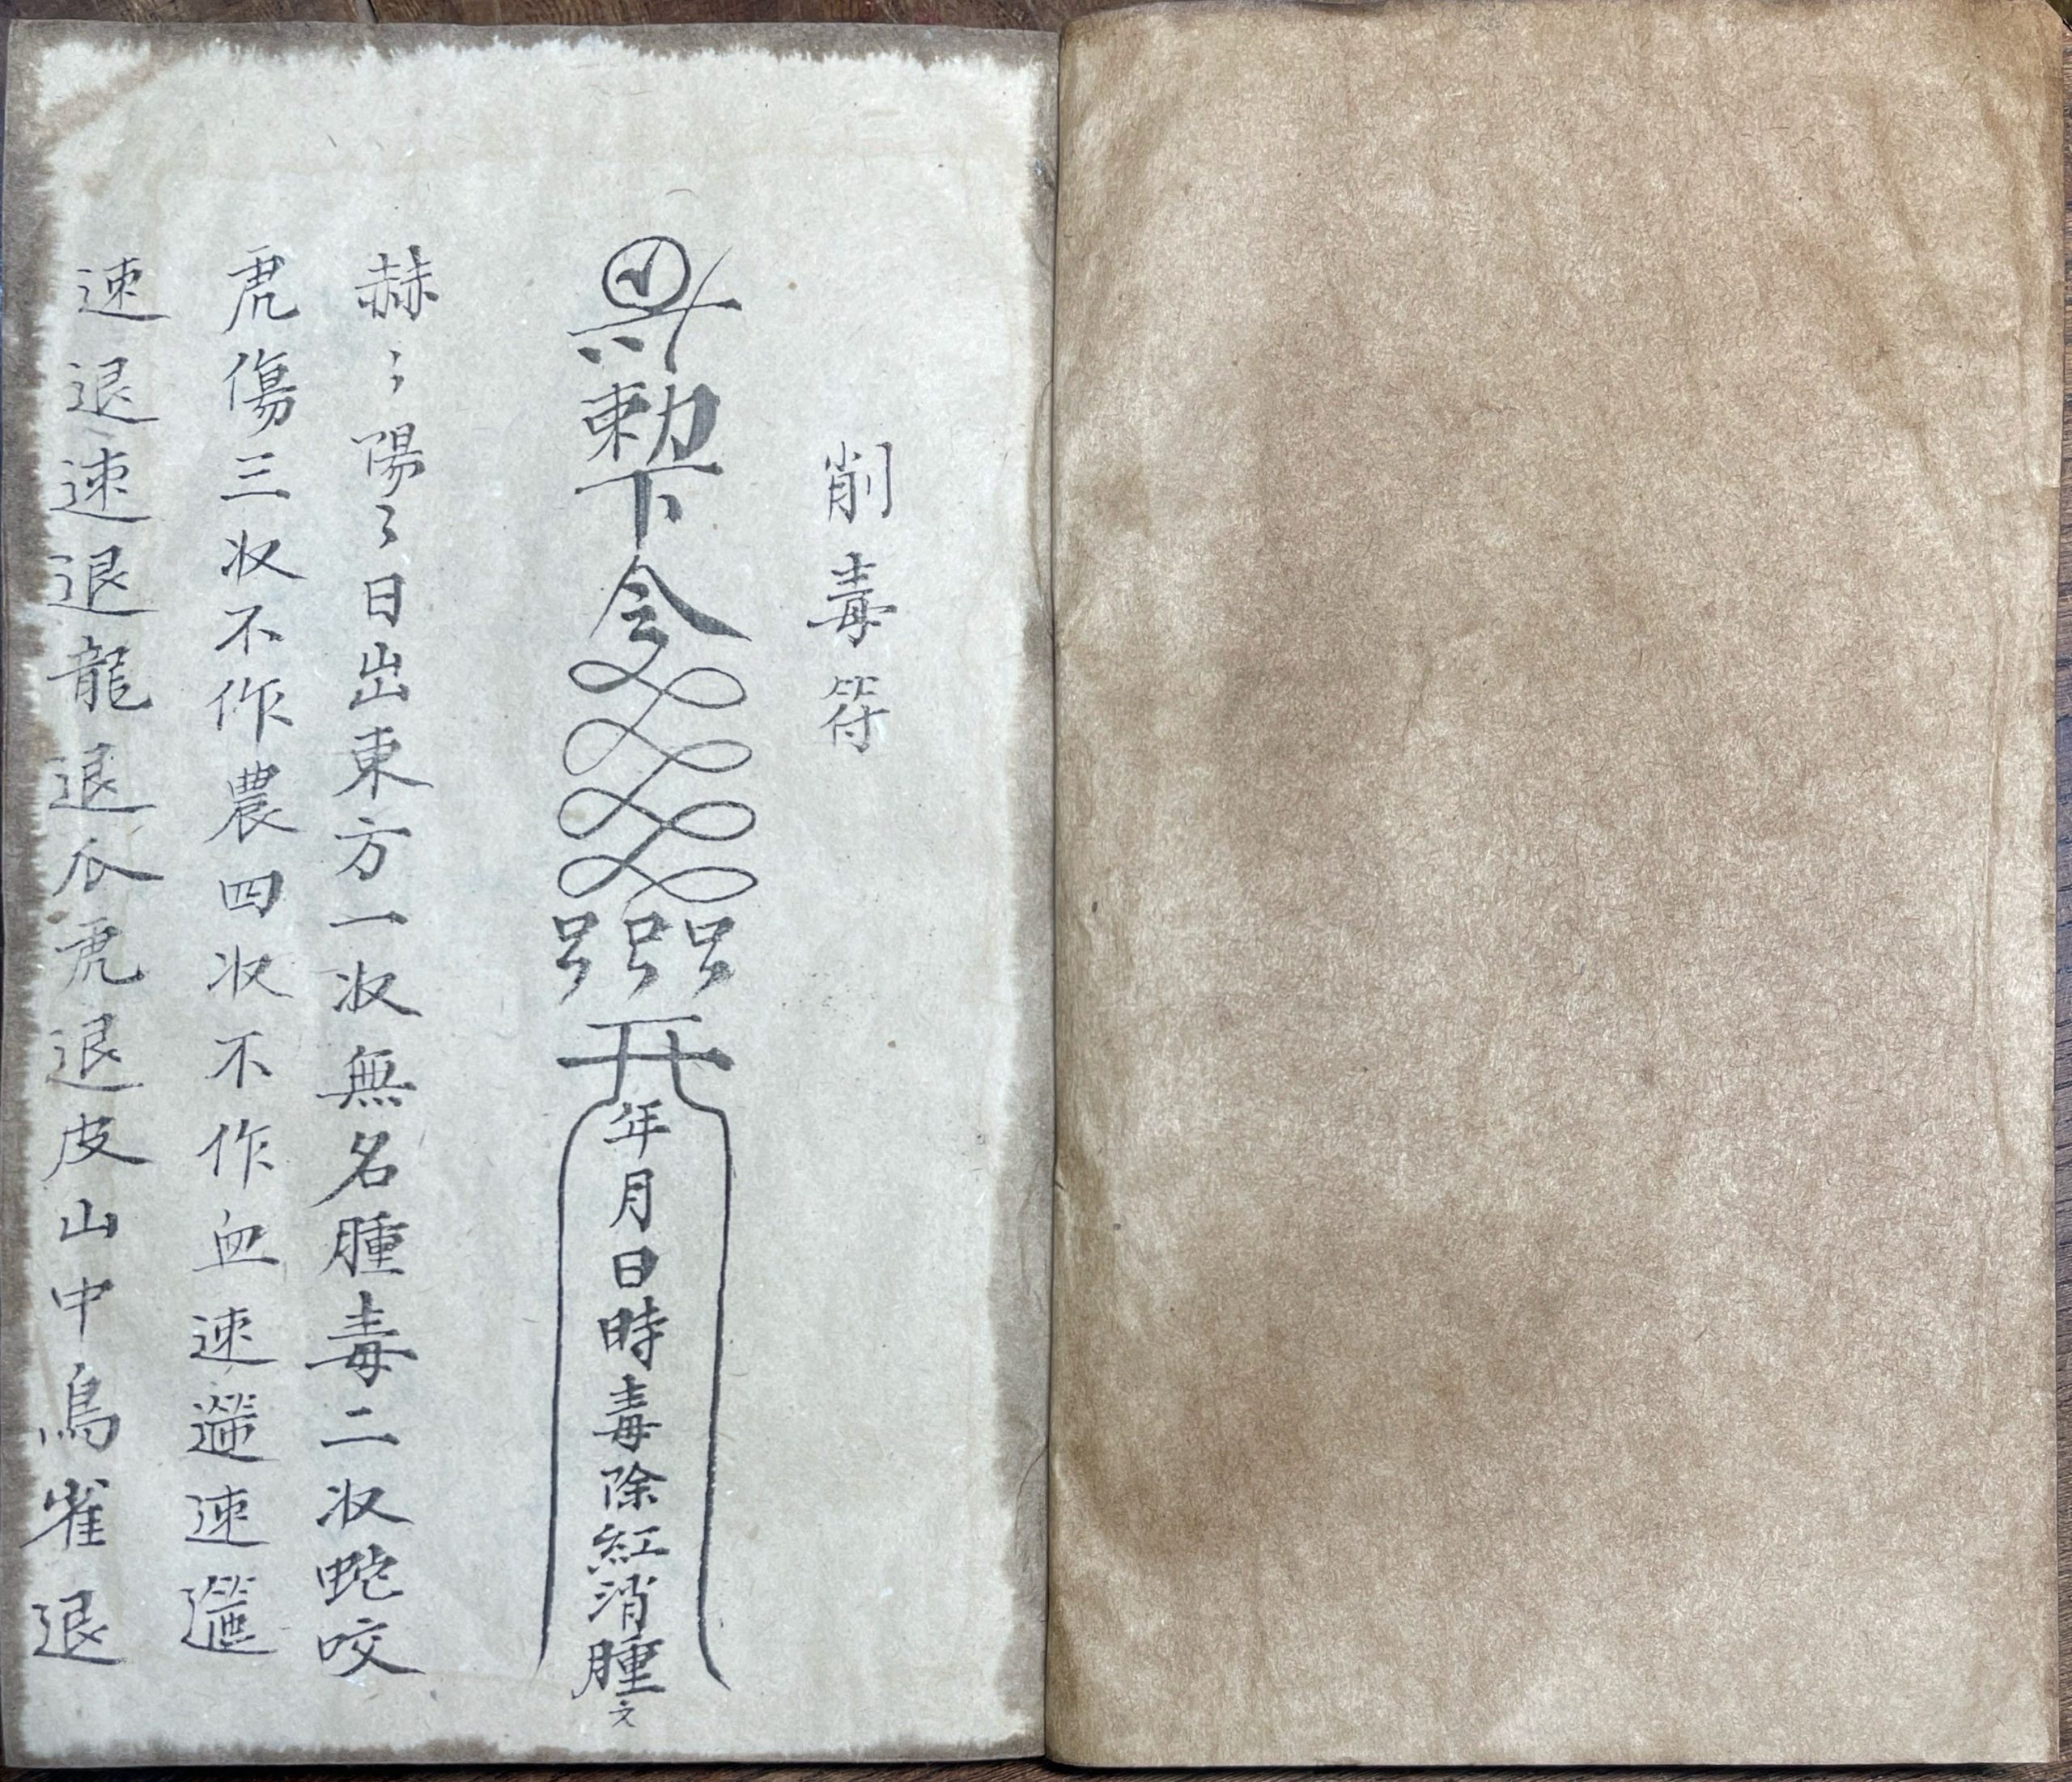 削毒符
勅下令
年月日時毒除紅消腫文
赫〻陽〻日出東方一收無名腫毒二收蛇咬
虎傷三收不作農四收不作血速速
速退速退龍退爪虎退皮山中鳥雀退